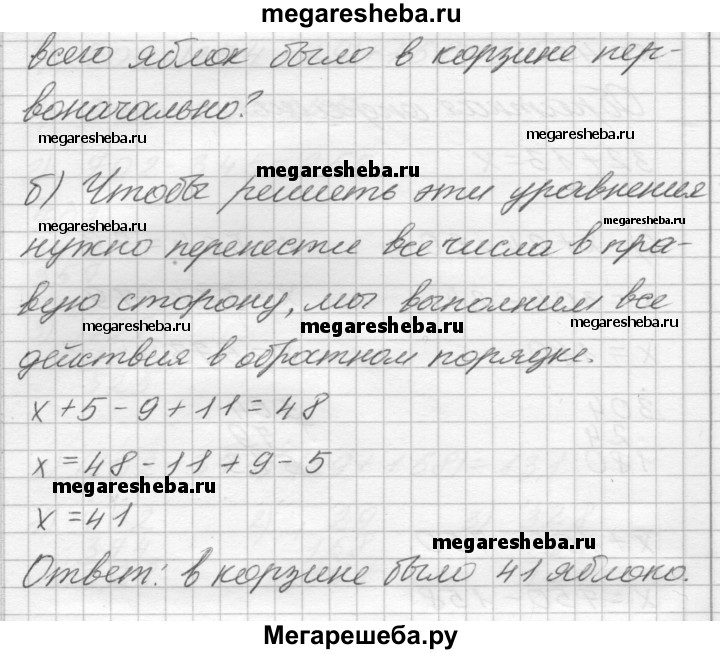 megaresheba.ru
всего яблок было в корзине пер-
воначально?
megaresheba.ru
megaresheba.ru
megaresheba.ru
б) Чтобы решить эти уравнения
megaresheba.ru
megaresheba.ru
нужно перенести все числа в пра-
вую сторону, мы выполним все
megaresheba.ru
megaresheba.ru
megaresheba.ru
действия в обратном порядке.
x + 5 - 9 + 11 = 48
x = 48 - 11 + 9 - 5
megaresheba.ru
x = 41
megaresheba.ru
Ответ: в корзине было 41 яблоко.
Мегарешеба.ру